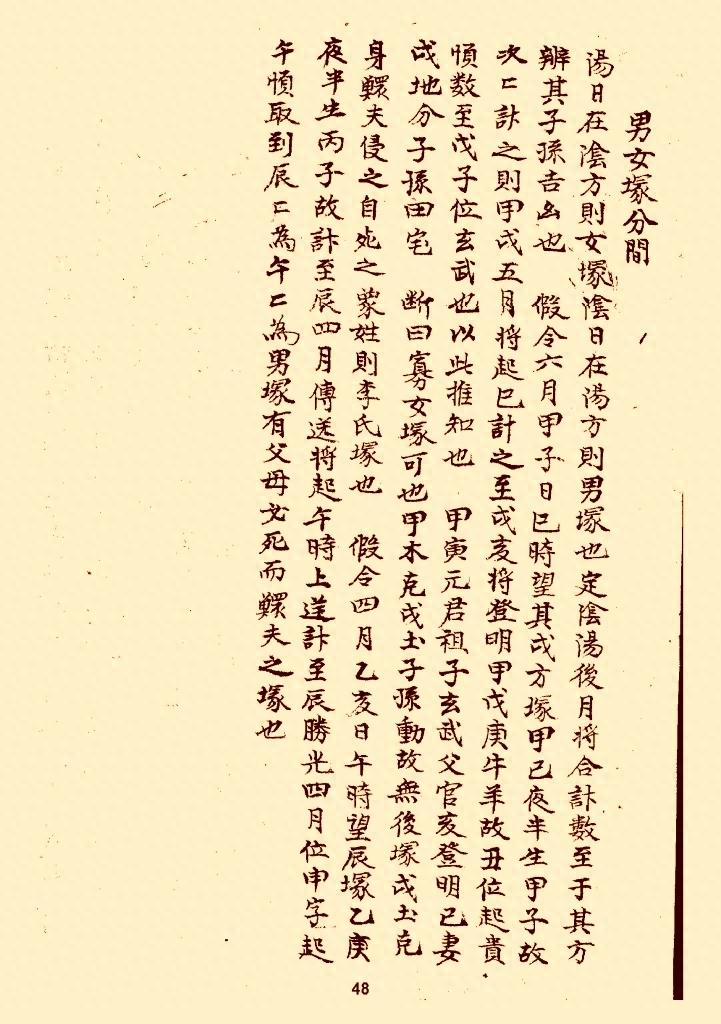 男女塚分間
湯日在隂方則女塚隂日在湯方則男塚也定隂湯後月將合計數至于其方
辨其子孫吉凶也 假令六月甲子日巳時望其戌方塚甲己夜半生甲子故
次〻計之則甲戌五月将起巳計之至戌亥将登明甲戊庚牛羊故丑位起貴
順数至戌子位玄武也以此推知也 甲寅元君祖子玄武父官亥登明已妻
戌地分子孫田宅 断曰寡女塚可也甲木克戌土子孫動故無後塚戌土克
身鰥夫侵之自死之蒙姓則李氏塚也 假令四月乙亥日午時望辰塚乙庚
夜半生丙子故計至辰四月傳送将起午時上逆計至辰勝光四月位申字起
午順取到辰〻為午〻為男塚有父母女死而鰥夫之塚也
48